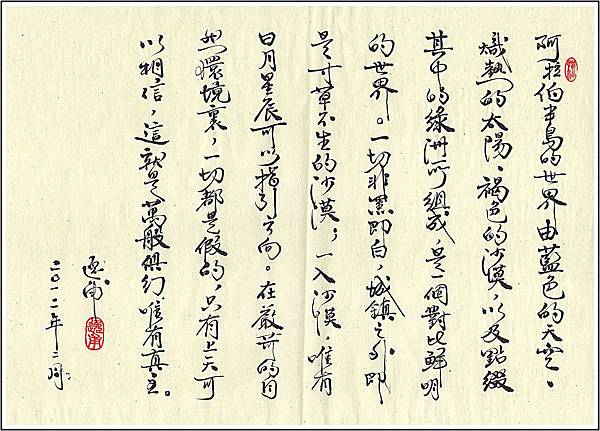 阿拉伯半島的世界由藍色的天空、
熾熱的太陽、褐色的沙漠，以及點綴
其中的綠洲所組成，是一個對比鮮明
的世界。一切非黑即白，城鎮之外即
是寸草不生的沙漠；一入沙漠，唯有
日月星辰可以指引方向。在嚴苛的自
然環境裏，一切都是假的，只有上天可
以相信，這就是萬般俱幻唯有真主。
逸甫
二〇一二年二月